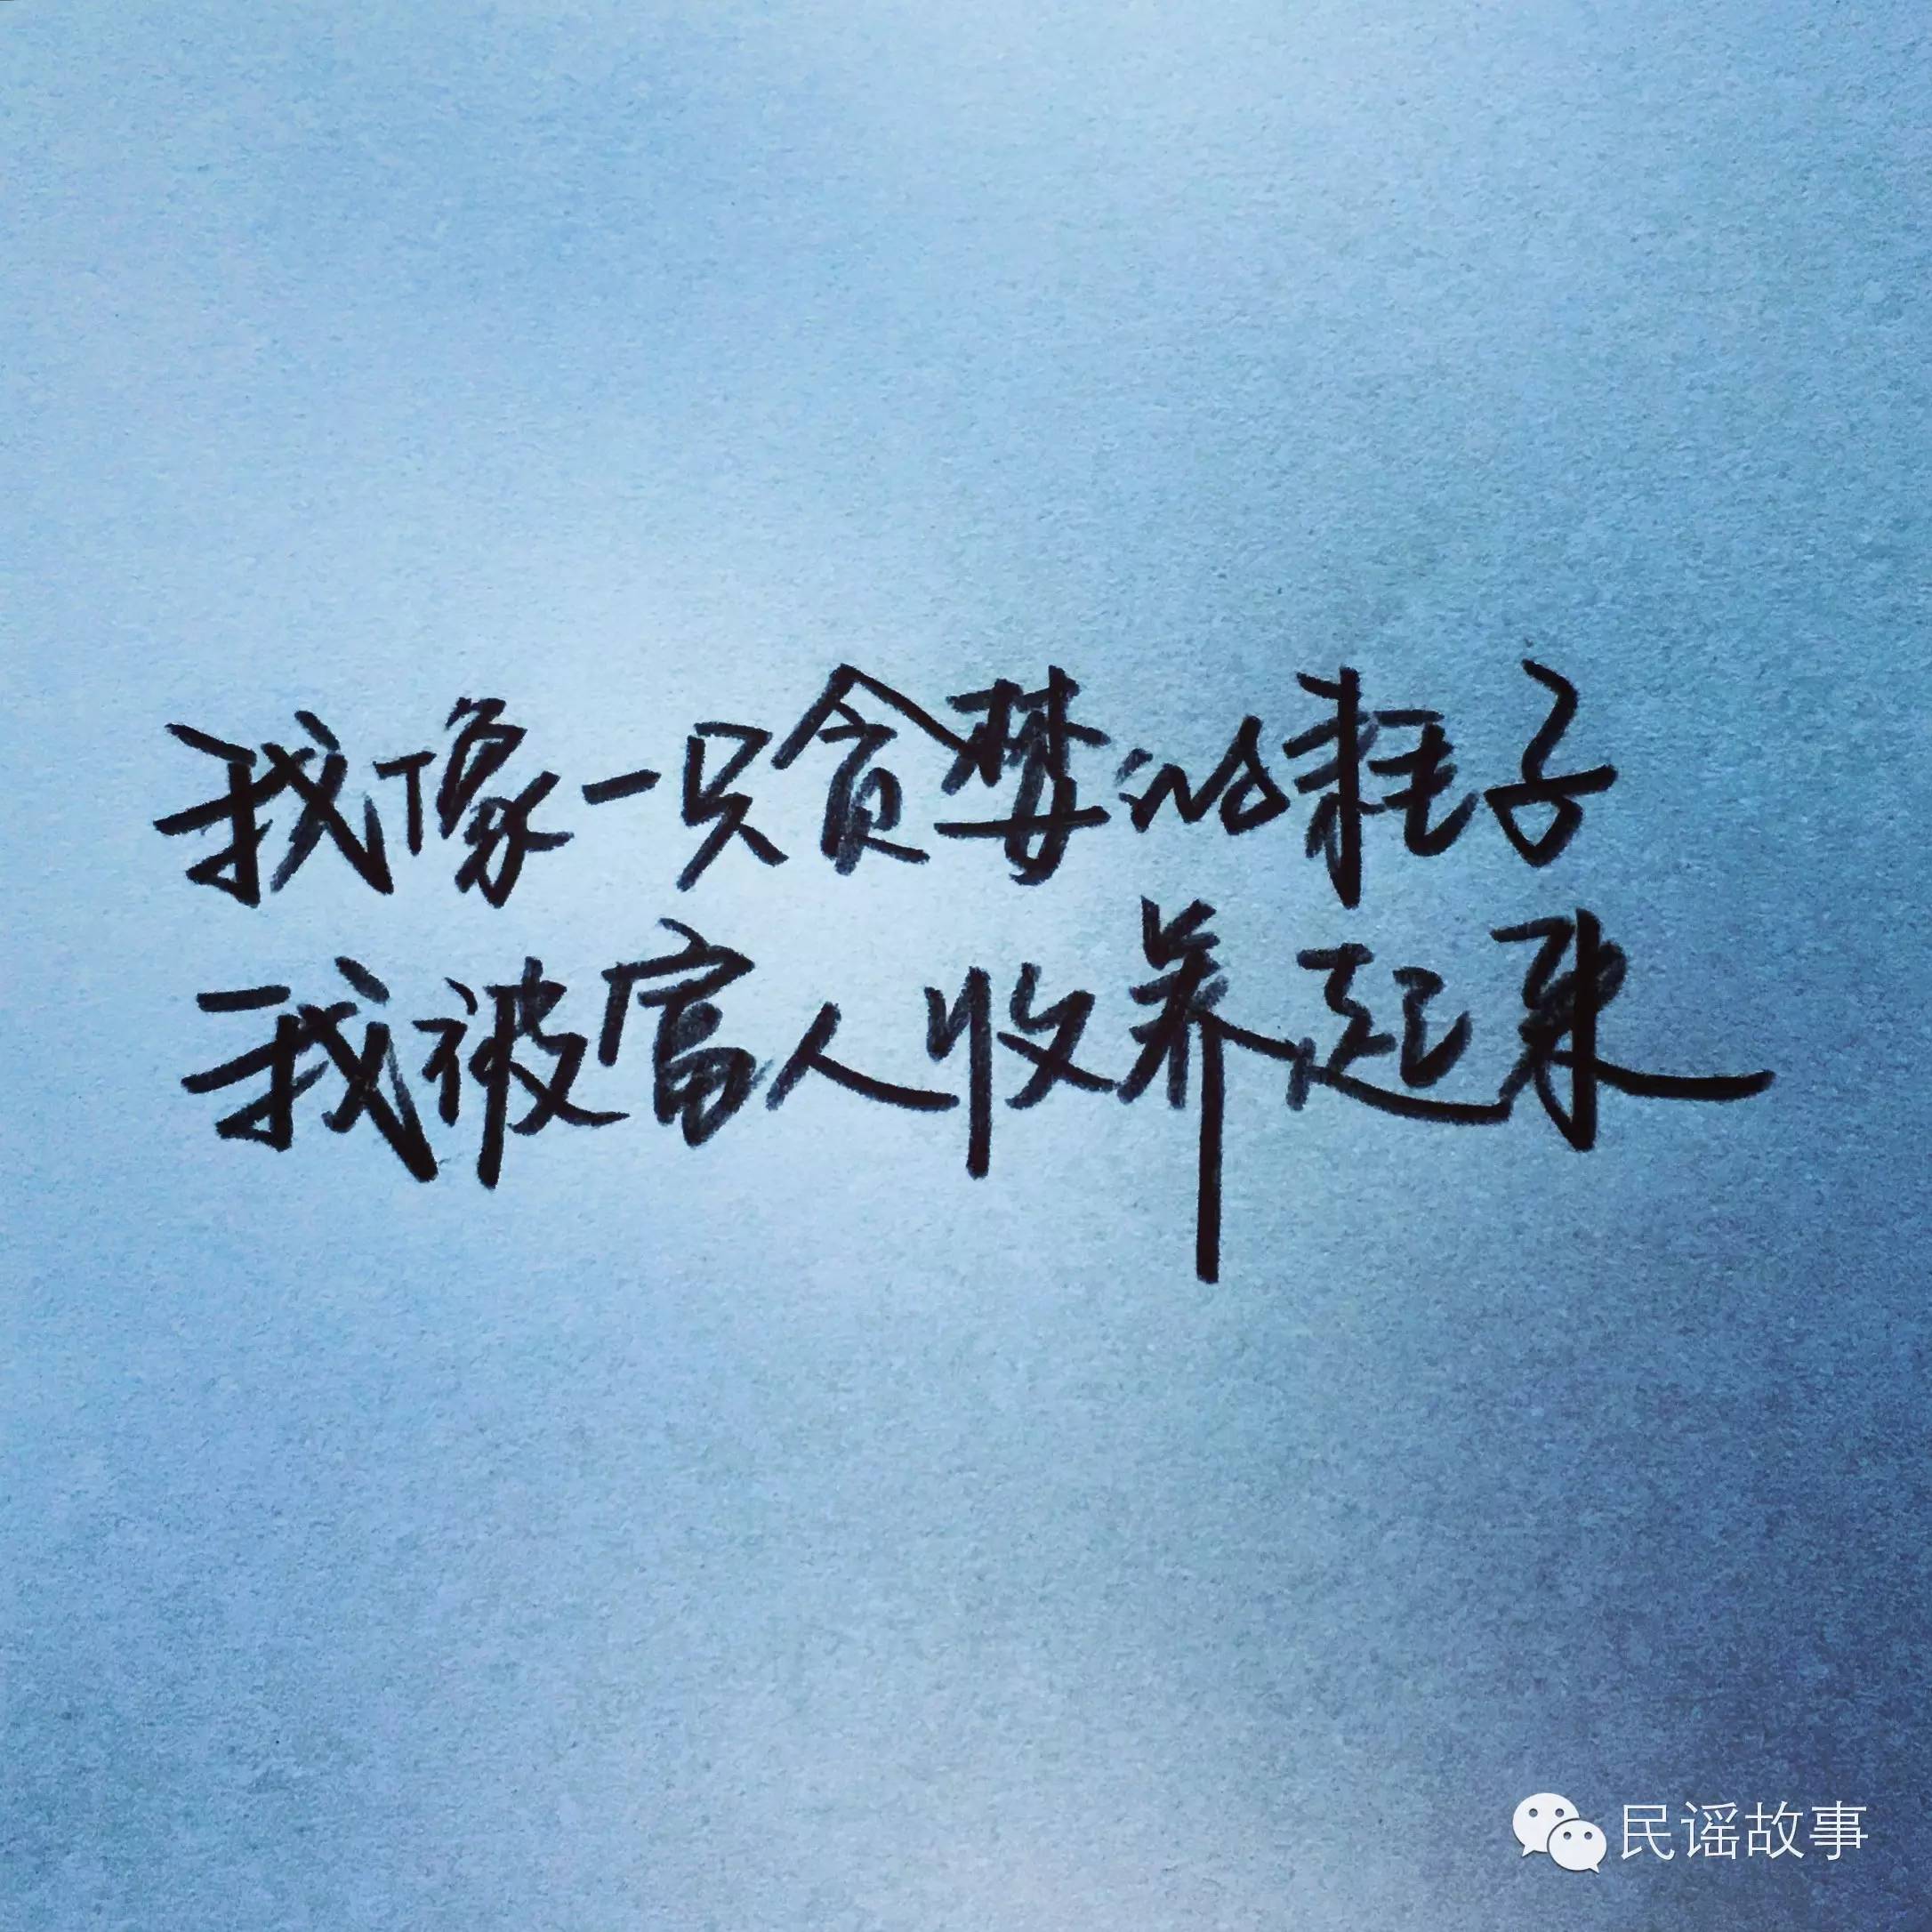 我像一只贪婪的耗子
我被富人收养起来
民谣故事